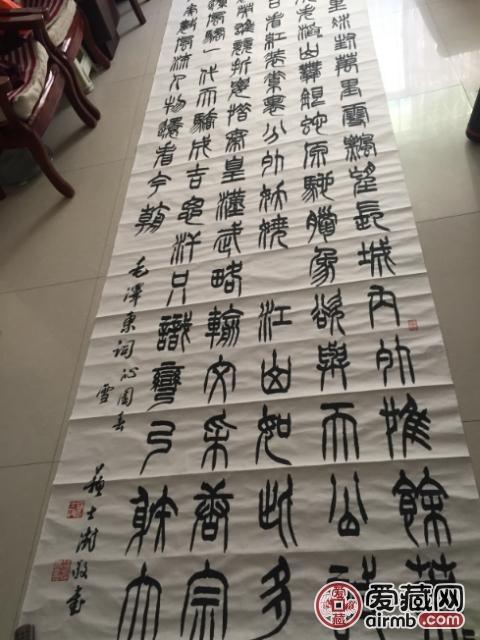 里冰封萬里雪飄望長城內外惟餘莽
滔山舞銀蛇原馳蠟象欲與天公試
日看紅裝素裹分外妖嬈江山如此多
英雄競折腰惜秦皇漢武略輸文采唐宗
風騷一代天驕成吉思汗只識彎弓射大
數風流人物還看今朝
毛澤東詞沁園春
雪
蘇士澍敬書
爱藏网
airmb.com